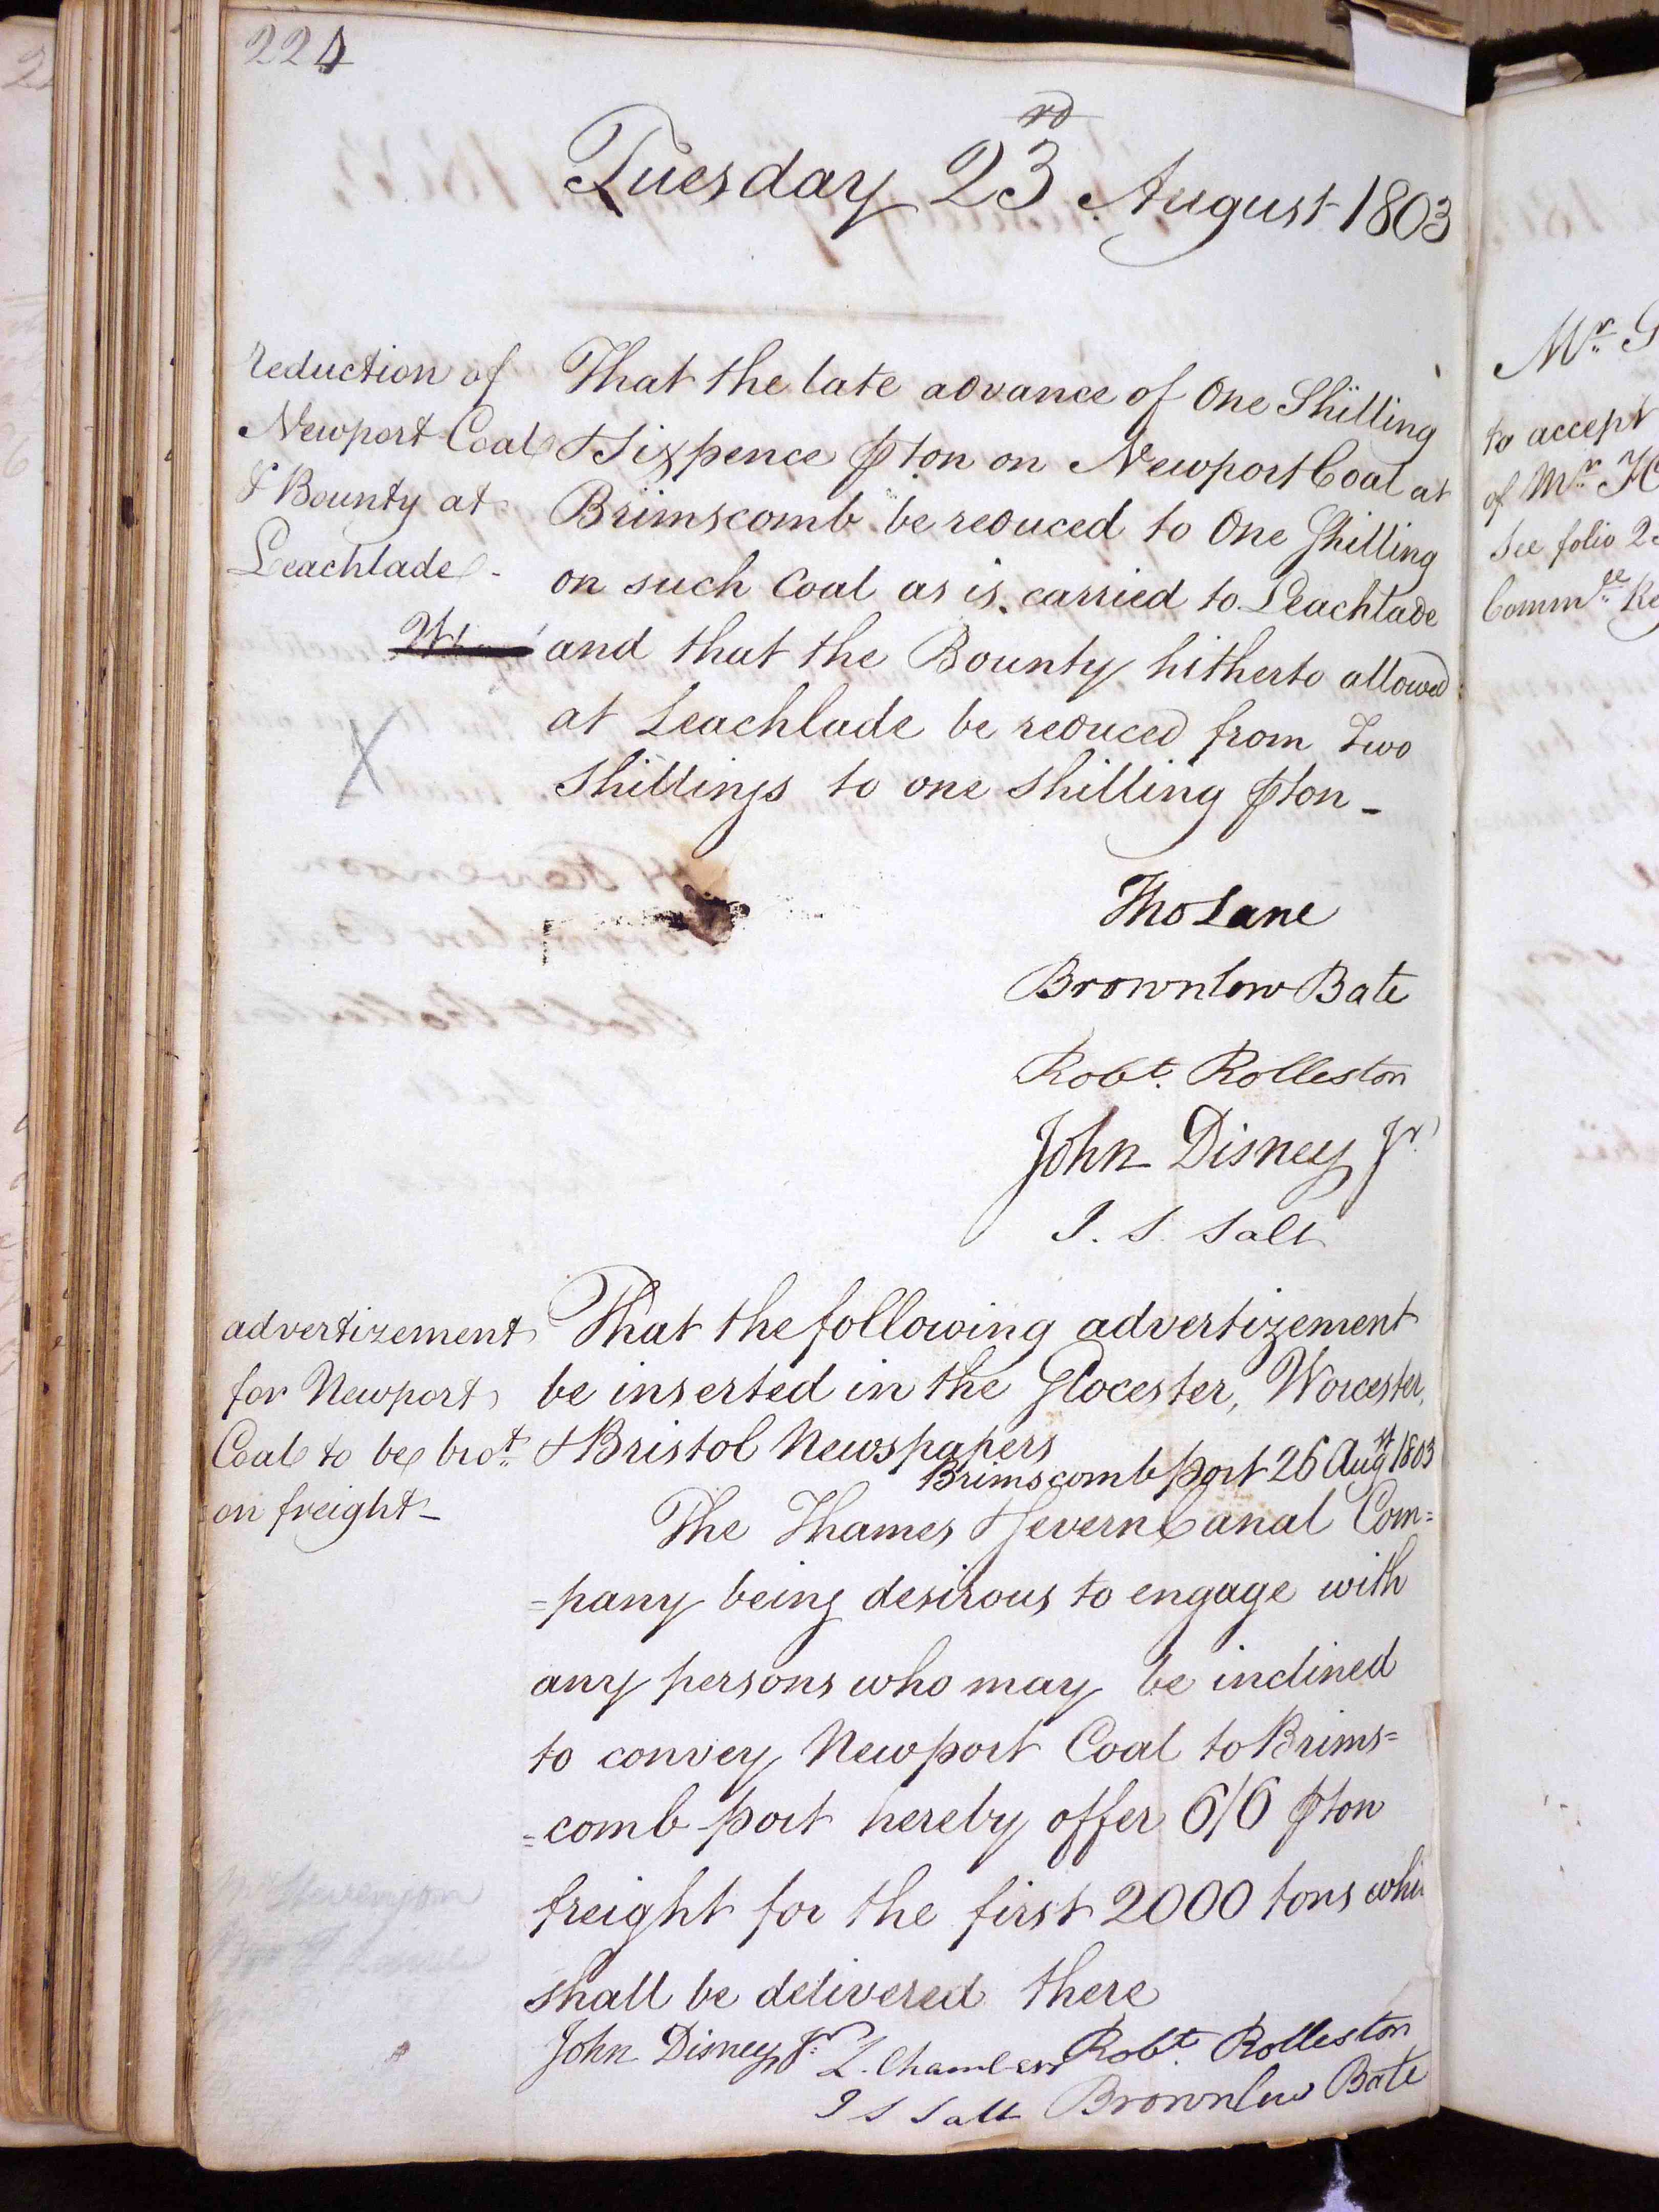 224
Tuesday 23rd August 1803
reduction of
Newport Coal
& Bounty at
Leachlade -
That the late advance of One Shilling
& Sixpence ⅌ ton on Newport Coal at
Brimscomb be reduced to One Shilling
on such Coal as is carried to Leachlade
and that the Bounty hitherto allowed
at Leachlade be reduced from Two
Shillings to one shilling ⅌ ton -
X
Tho Lane
Brownlow Bate
Robt. Rolleston
John Disney Jr.
J. S. Salt
advertizement
for Newport
Coal to be brot.
on freight -
That the following advertizement
be inserted in the Glocester, Worcester,
& Bristol Newspapers
Brimscomb port 26 Augst 1803
The Thames & Severn Canal Com=
=pany being desirous to engage with
any persons who may be inclined
to convey Newport Coal to Brims=
=comb port hereby offer 6/6 ⅌ ton
freight for the first 2000 tons whi
shall be delivered there
John Disney Jr. L. Chambers Robt. Rolleston
J S Salt Brownlow Bate
Mr. Stevenson
Mr. G
to accept
of Mr. H
See folio 2
Commee. Re